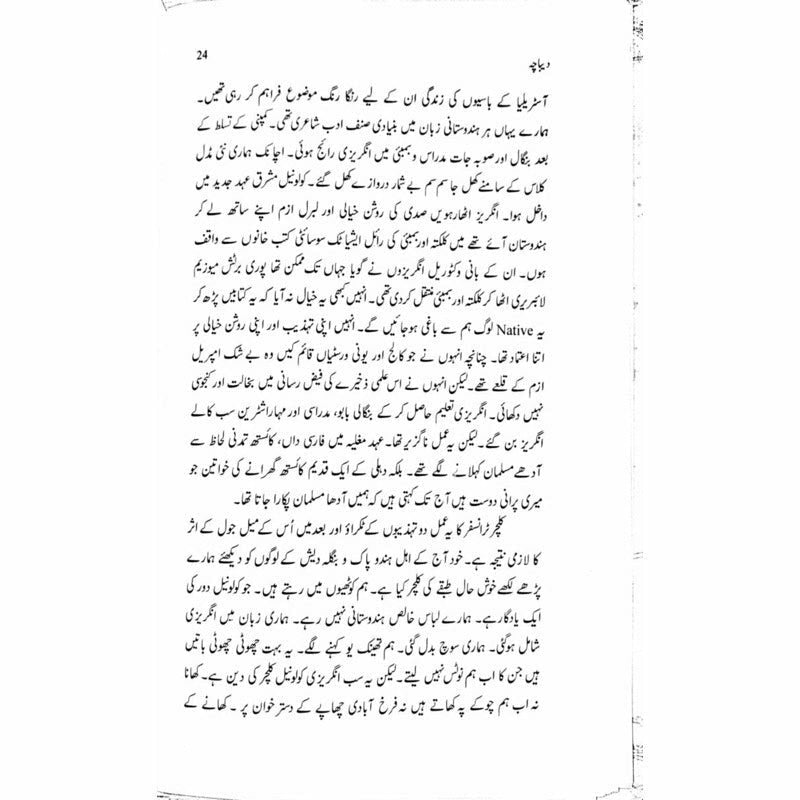 دیباچہ 24
آسٹریلیا کے باسیوں کی زندگی ان کے لیے رنگا رنگ موضوع فراہم کر رہی تھیں۔
ہمارے یہاں ہر ہندوستانی زبان میں بنیادی صنف ادب شاعری تھی۔ کمپنی کے تسلط کے
بعد بنگال اور صوبہ جات مدراس و بمبئی میں انگریزی رائج ہوئی۔ اچانک ہماری نئی مڈل
کلاس کے سامنے کھل جا سم سم بے شمار دروازے کھل گئے۔ کولونیل مشرق عہد جدید میں
داخل ہوا۔ انگریز اٹھارہویں صدی کی روشن خیالی اور لبرل ازم اپنے ساتھ لے کر
ہندوستان آئے تھے میں کلکتہ اور بمبئی کی رائل ایشیاٹک سوسائٹی کتب خانوں سے واقف
ہوں۔ ان کے بانی وکٹوریل انگریزوں نے گویا جہاں تک ممکن تھا پوری برٹش میوزیم
لائبریری اٹھا کر کلکتہ اور بمبئی منتقل کر دی تھی۔ انہیں کبھی یہ خیال نہ آیا کہ یہ کتابیں پڑھ کر
یہ Native لوگ ہم سے باغی ہو جائیں گے۔ انہیں اپنی تہذیب اور اپنی روشن خیالی پر
اتنا اعتماد تھا۔ چنانچہ انہوں نے جو کالج اور یونی ورسٹیاں قائم کیں وہ بے شک امپریل
ازم کے قلعے تھے۔ لیکن انہوں نے اس علمی ذخیرے کی فیض رسانی میں بخالت اور کنجوسی
نہیں دکھائی۔ انگریزی تعلیم حاصل کر کے بنگالی بابو، مدراسی اور مہاراشٹرین سب کالے
انگریز بن گئے۔ لیکن یہ عمل ناگزیر تھا۔ عہد مغلیہ میں فارسی داں، کائستھ تمدنی لحاظ سے
آدھے مسلمان کہلانے لگے تھے۔ بلکہ دہلی کے ایک قدیم کائستھ گھرانے کی خواتین جو
میری پرانی دوست ہیں آج تک کہتی ہیں کہ ہمیں آدھا مسلمان پکارا جاتا تھا۔
کلچر ٹرانسفر کا یہ عمل دو تہذیبوں کے ٹکراؤ اور بعد میں اُس کے میل جول کے اثر
کا لازمی نتیجہ ہے۔ خود آج کے اہل ہند و پاک و بنگلہ دیش کے لوگوں کو دیکھئے ہمارے
پڑھے لکھے خوش حال طبقے کی کلچر کیا ہے۔ ہم کوٹھیوں میں رہتے ہیں۔ جو کولونیل دور کی
ایک یادگار ہے۔ ہمارے لباس خالص ہندوستانی نہیں رہے۔ ہماری زبان میں انگریزی
شامل ہو گئی۔ ہماری سوچ بدل گئی۔ ہم تھینک یو کہنے لگے۔ یہ بہت چھوٹی چھوٹی باتیں
ہیں جن کا اب ہم نوٹس نہیں لیتے۔ لیکن یہ سب انگریزی کولونیل کلچر کی دین ہے۔ کھانا
نہ اب ہم چوکے پہ کھاتے ہیں نہ فرخ آبادی چھاپے کے دستر خوان پر۔ کھانے کے